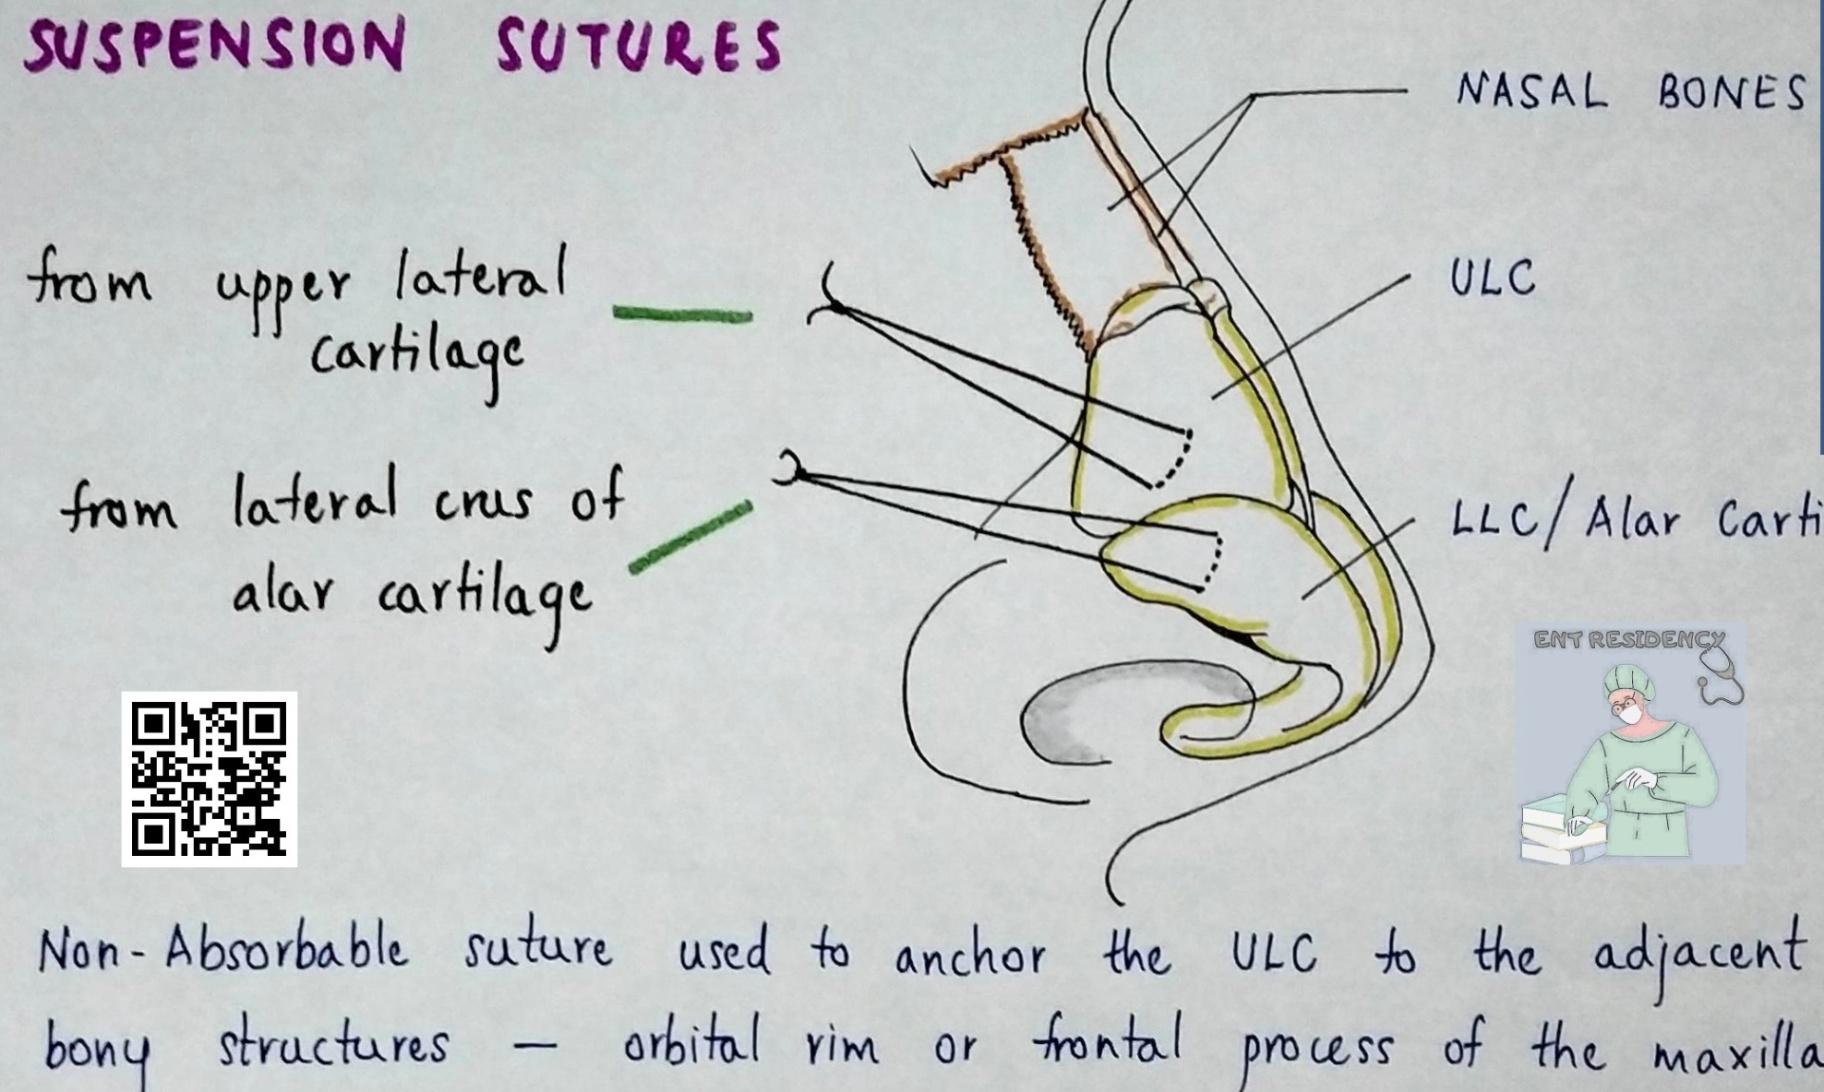 SUSPENSION SUTURES
NASAL BONES
from upper lateral
cartilage
ULC
from lateral crus of
alar cartilage
LLC/Alar Carti
ENT RESIDENCY
Non-Absorbable suture used to anchor the ULC to the adjacent
bony structures — orbital rim or frontal process of the maxilla